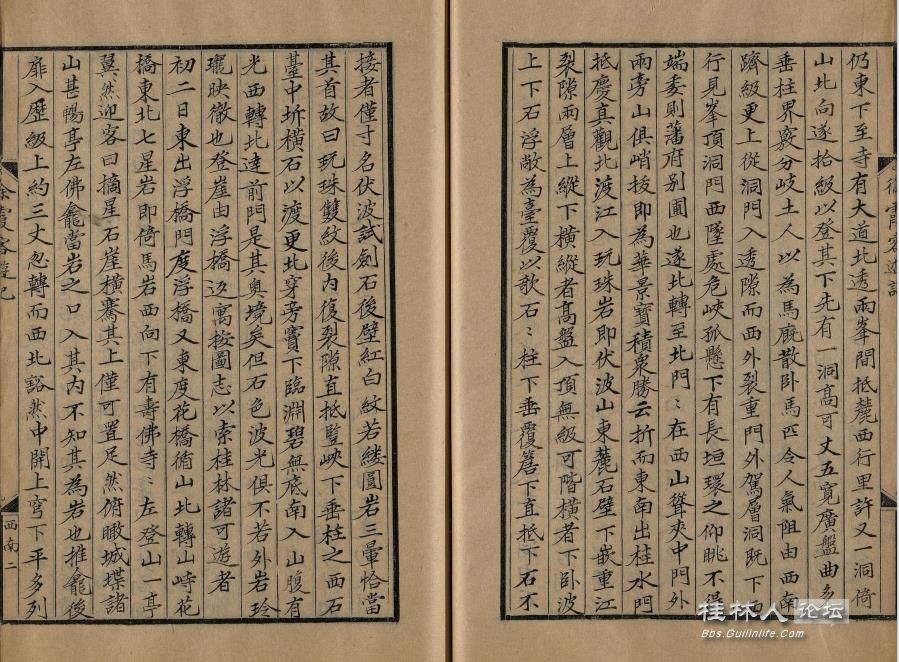 仍東下至寺有大道北透兩峯間抵麓西行里許又一洞倚
山北向遂拾級以登其下先有一洞高可丈五寬廣盤曲多
垂柱界竅分岐土人以為馬廐散卧馬匹令人氣阻由西南
躋級更上從洞門入透隙而西外裂重門外駕層洞既下
行見峯頂洞門西墜處危峽孤懸下有長垣環之仰眺不得
端委則藩府別圃也遂北轉至北門〻在西山聳夾中門外
兩旁山俱峭拔即為華景寶積衆勝云折而東南出桂水門
抵慶真觀北渡江入玩珠岩即伏波山東麓石壁下嵌重江
裂隙兩層上縱下橫縱者高盤入頂無級可階橫者下卧波
上下石浮敞為臺覆以欹石〻柱下垂覆簷下直抵下石不
接者僅寸名伏波試劍石後壁紅白紋若縷圓岩三暈恰當
其首故曰玩珠雙紋後內復裂隙直抵竪峽下垂柱之西石
臺中坼橫石以渡更北穿旁竇下臨淵碧無底南入山腹有
光西轉北達前門是其奧境矣但石色波光俱不若外岩玲
瓏映徹也登崖由浮橋返寓按圖志以索桂林諸可遊者
初二日東出浮橋門度浮橋又東度花橋循山北轉山峙花
橋東北七星岩即倚馬岩西向下有壽佛寺〻左登山一亭
翼然迎客曰摘星石崖橫騫其上僅可置足然俯瞰城堞諸
山甚暢亭左佛龕當岩之口入其內不知其為岩也推龕後
扉入歷級上約三丈忽轉而西北豁然中開上穹下平多列
徐霞客遊記
西南二
桂林人论坛
Bbs.Guilinlife.Com